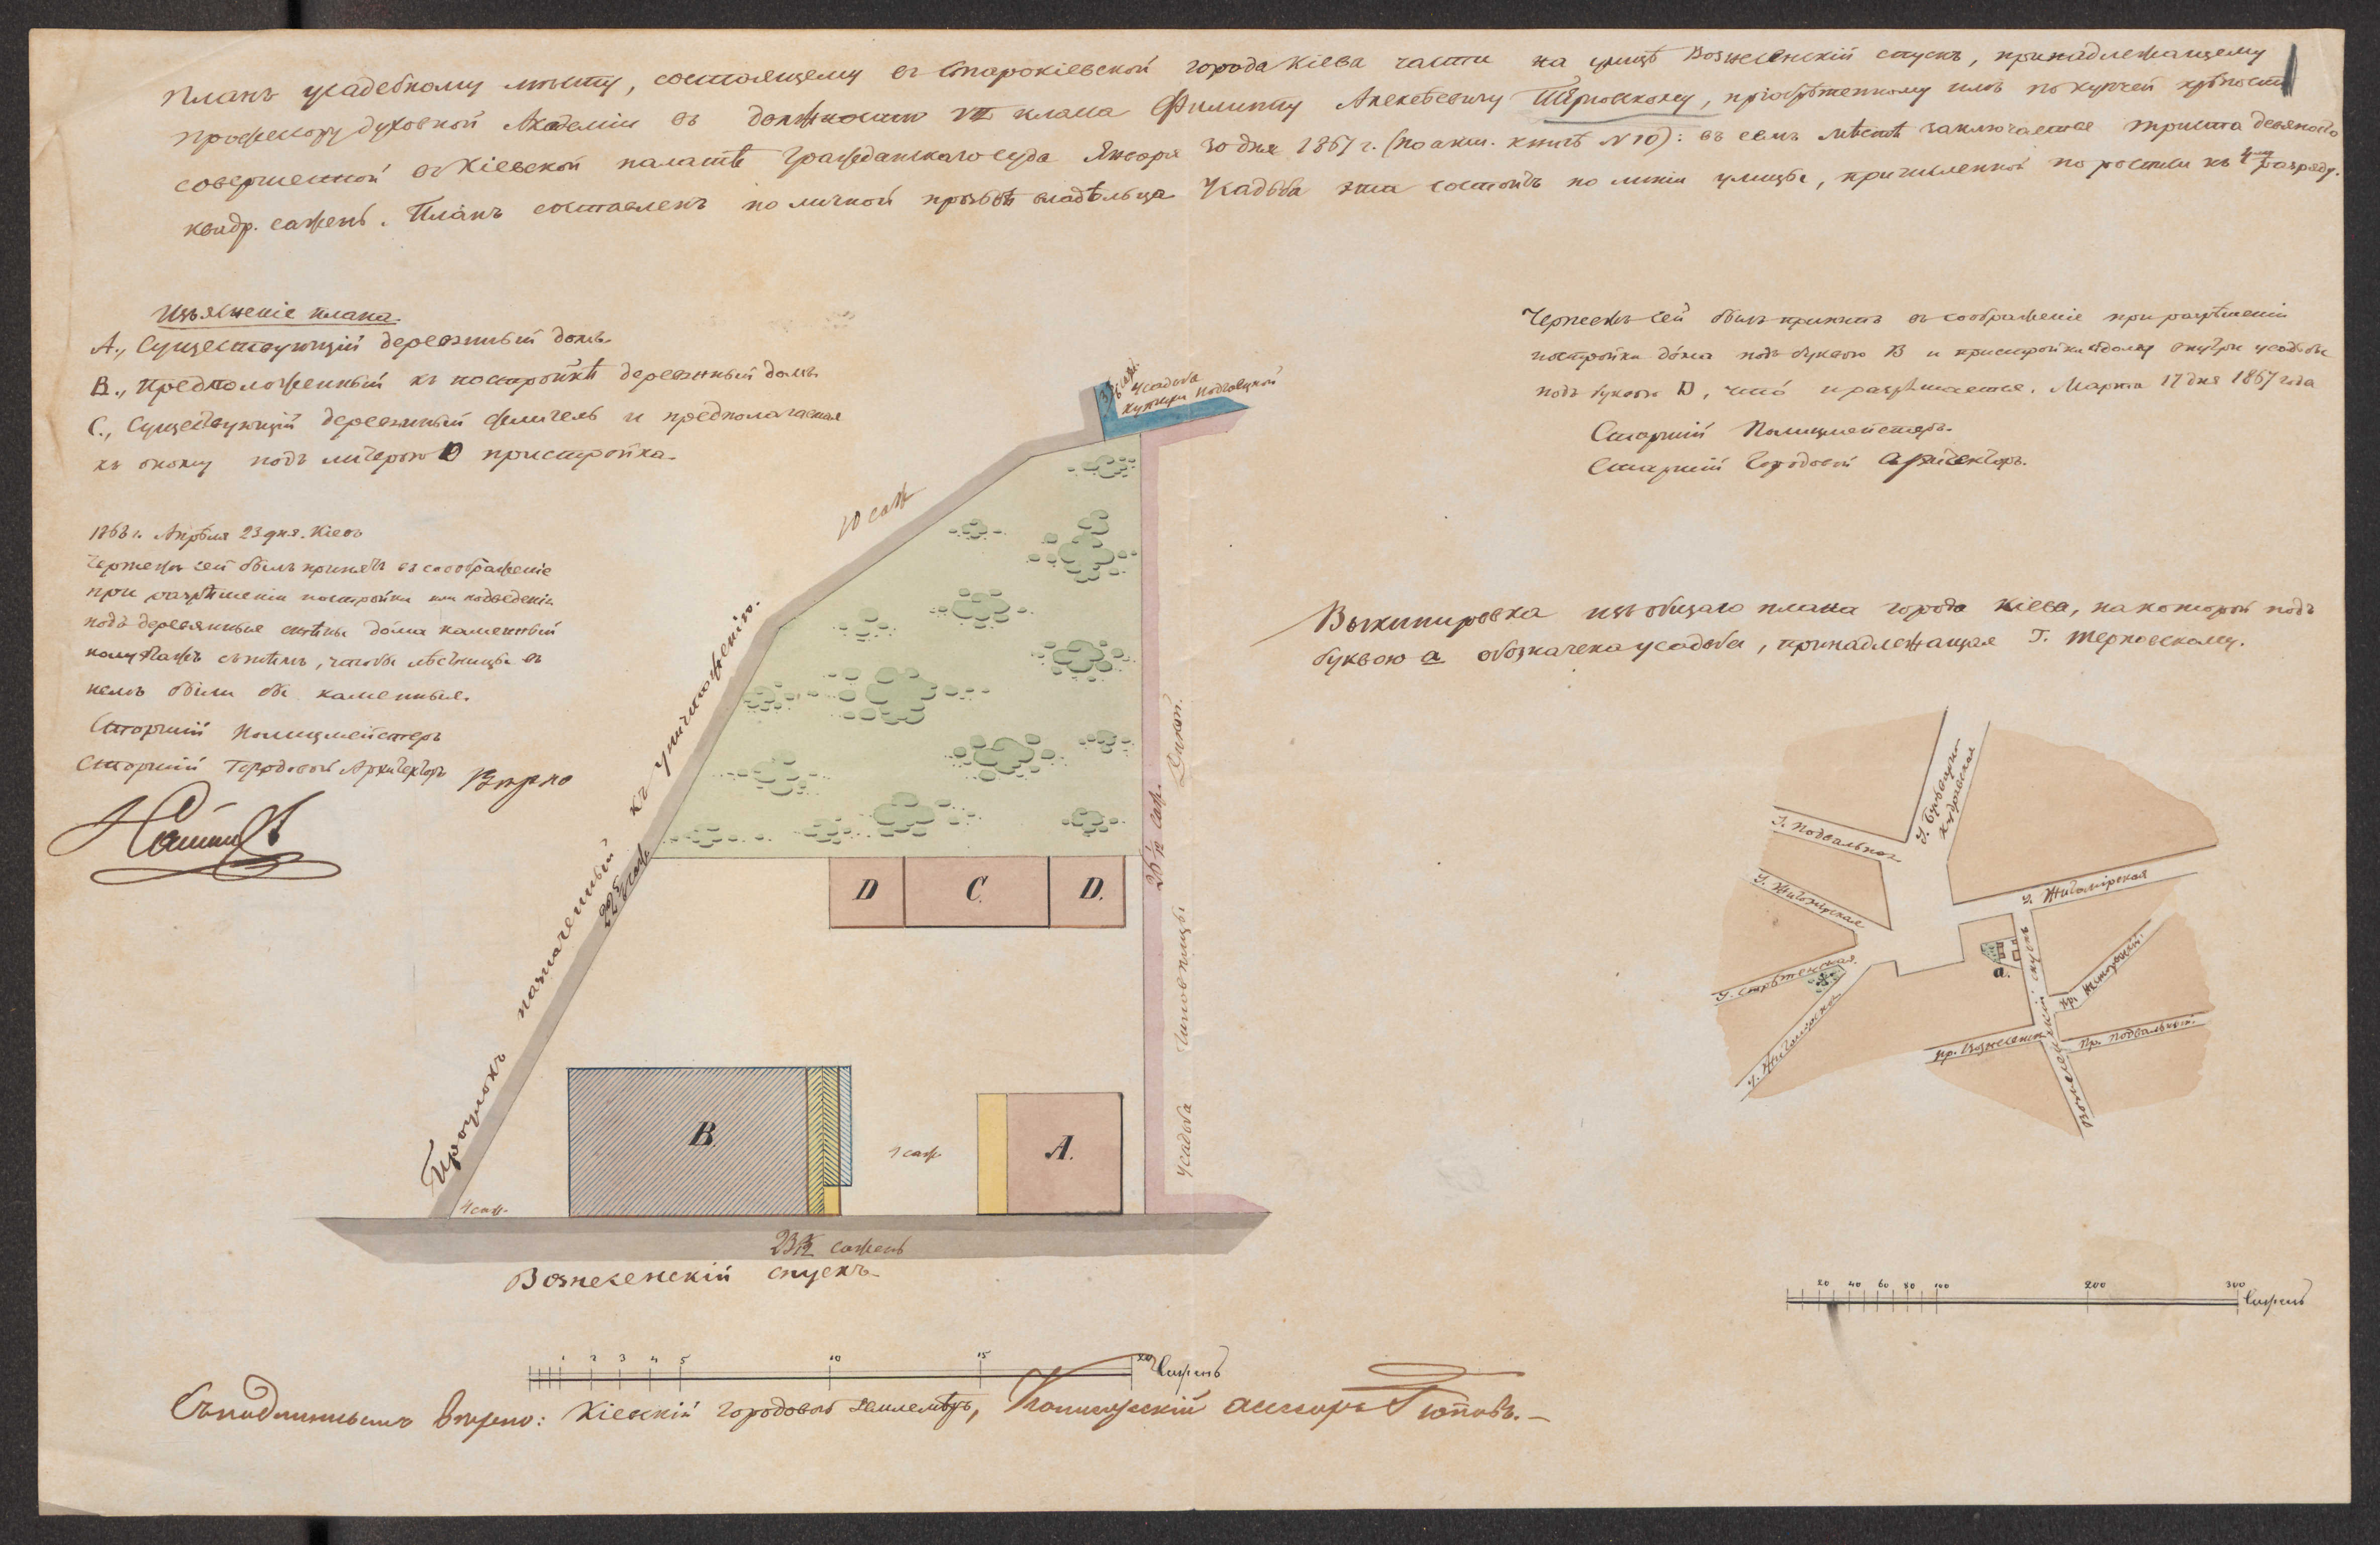 Планъ усадебному мѣсту, состоящему въ Старокіевской города Кіева части на улицѣ Вознесенскій спускъ, принадлежащему
профессору духовной Академіи въ должности VII класса Филиппу Алексѣевичу Терновскому, пріобрѣтенному имъ по купчей крѣпости
совершенной въ Кіевской палатѣ Гражданскаго суда Января 30 дня 1867 г. (по акт. книгѣ N 10): въ семъ мѣстѣ заключается триста девяносто
квадр. сажень. Планъ составленъ по личной прозьбѣ владѣльца Усадьба эта состоитъ по линіи улицы, причисленной по росписи къ 4му разряду.
Изъясненіе плана.
А., Существующій деревянный домъ.
В., Предположенный къ постройкѣ деревянный домъ
С., Существующій деревянный флигель и предполагаемая
къ оному подъ литерою D пристройка.
1868 г. Апрѣля 23 дня. Кіевъ
Чертежъ сей былъ принятъ въ соображеніе
при разрѣшеніи постройки или подведеніи
подъ деревянные стѣны дома каменный
съ тѣмъ, чтобы лѣстницы въ
немъ были обѣ каменные.
Старшій Полицмейстеръ
Старшій Городовой Архитекторъ
Вѣрно
Чертежъ сей былъ принятъ въ соображеніе при разрѣшеніи
постройки дома подъ буквою В и пристройки къ дому внутри усадьбы
подъ буквою D, что и разрѣшается. Марта 17 дня 1867 года
Старшій Полицмейстеръ.
Старшій Городовой Архитекторъ.
Выкипировка изъ общаго плана города Кіева, на которой подъ
буквою а обозначена усадьба, принадлежащая Г. Терновскому.
Усадьба
10 саж
Проулокъ назначенный къ уничтоженію.
26 1/12 саж.
усадьба Чиновницы
D
C.
D.
B
A.
4 саж.
4 саж.
23 5/12 сажень
Вознесенскій спускъ
У. Бульварно-
Кудрявская
У. Подвальная
У. Житомірская
У. Житомірская
У. Стрѣтенская
У. Житомірская
а.
Вознесенскій спускъ
пр. Житомірскій.
пр. Вознесенск
пр. Подвальной.
20 40 60 80 100 200 300 Сажень
1 2 3 4 5 10 15 20 Сажень
Съ подлиннымъ вѣрно: Кіевскій городовой землемѣръ, Коллежскій ассесоръ